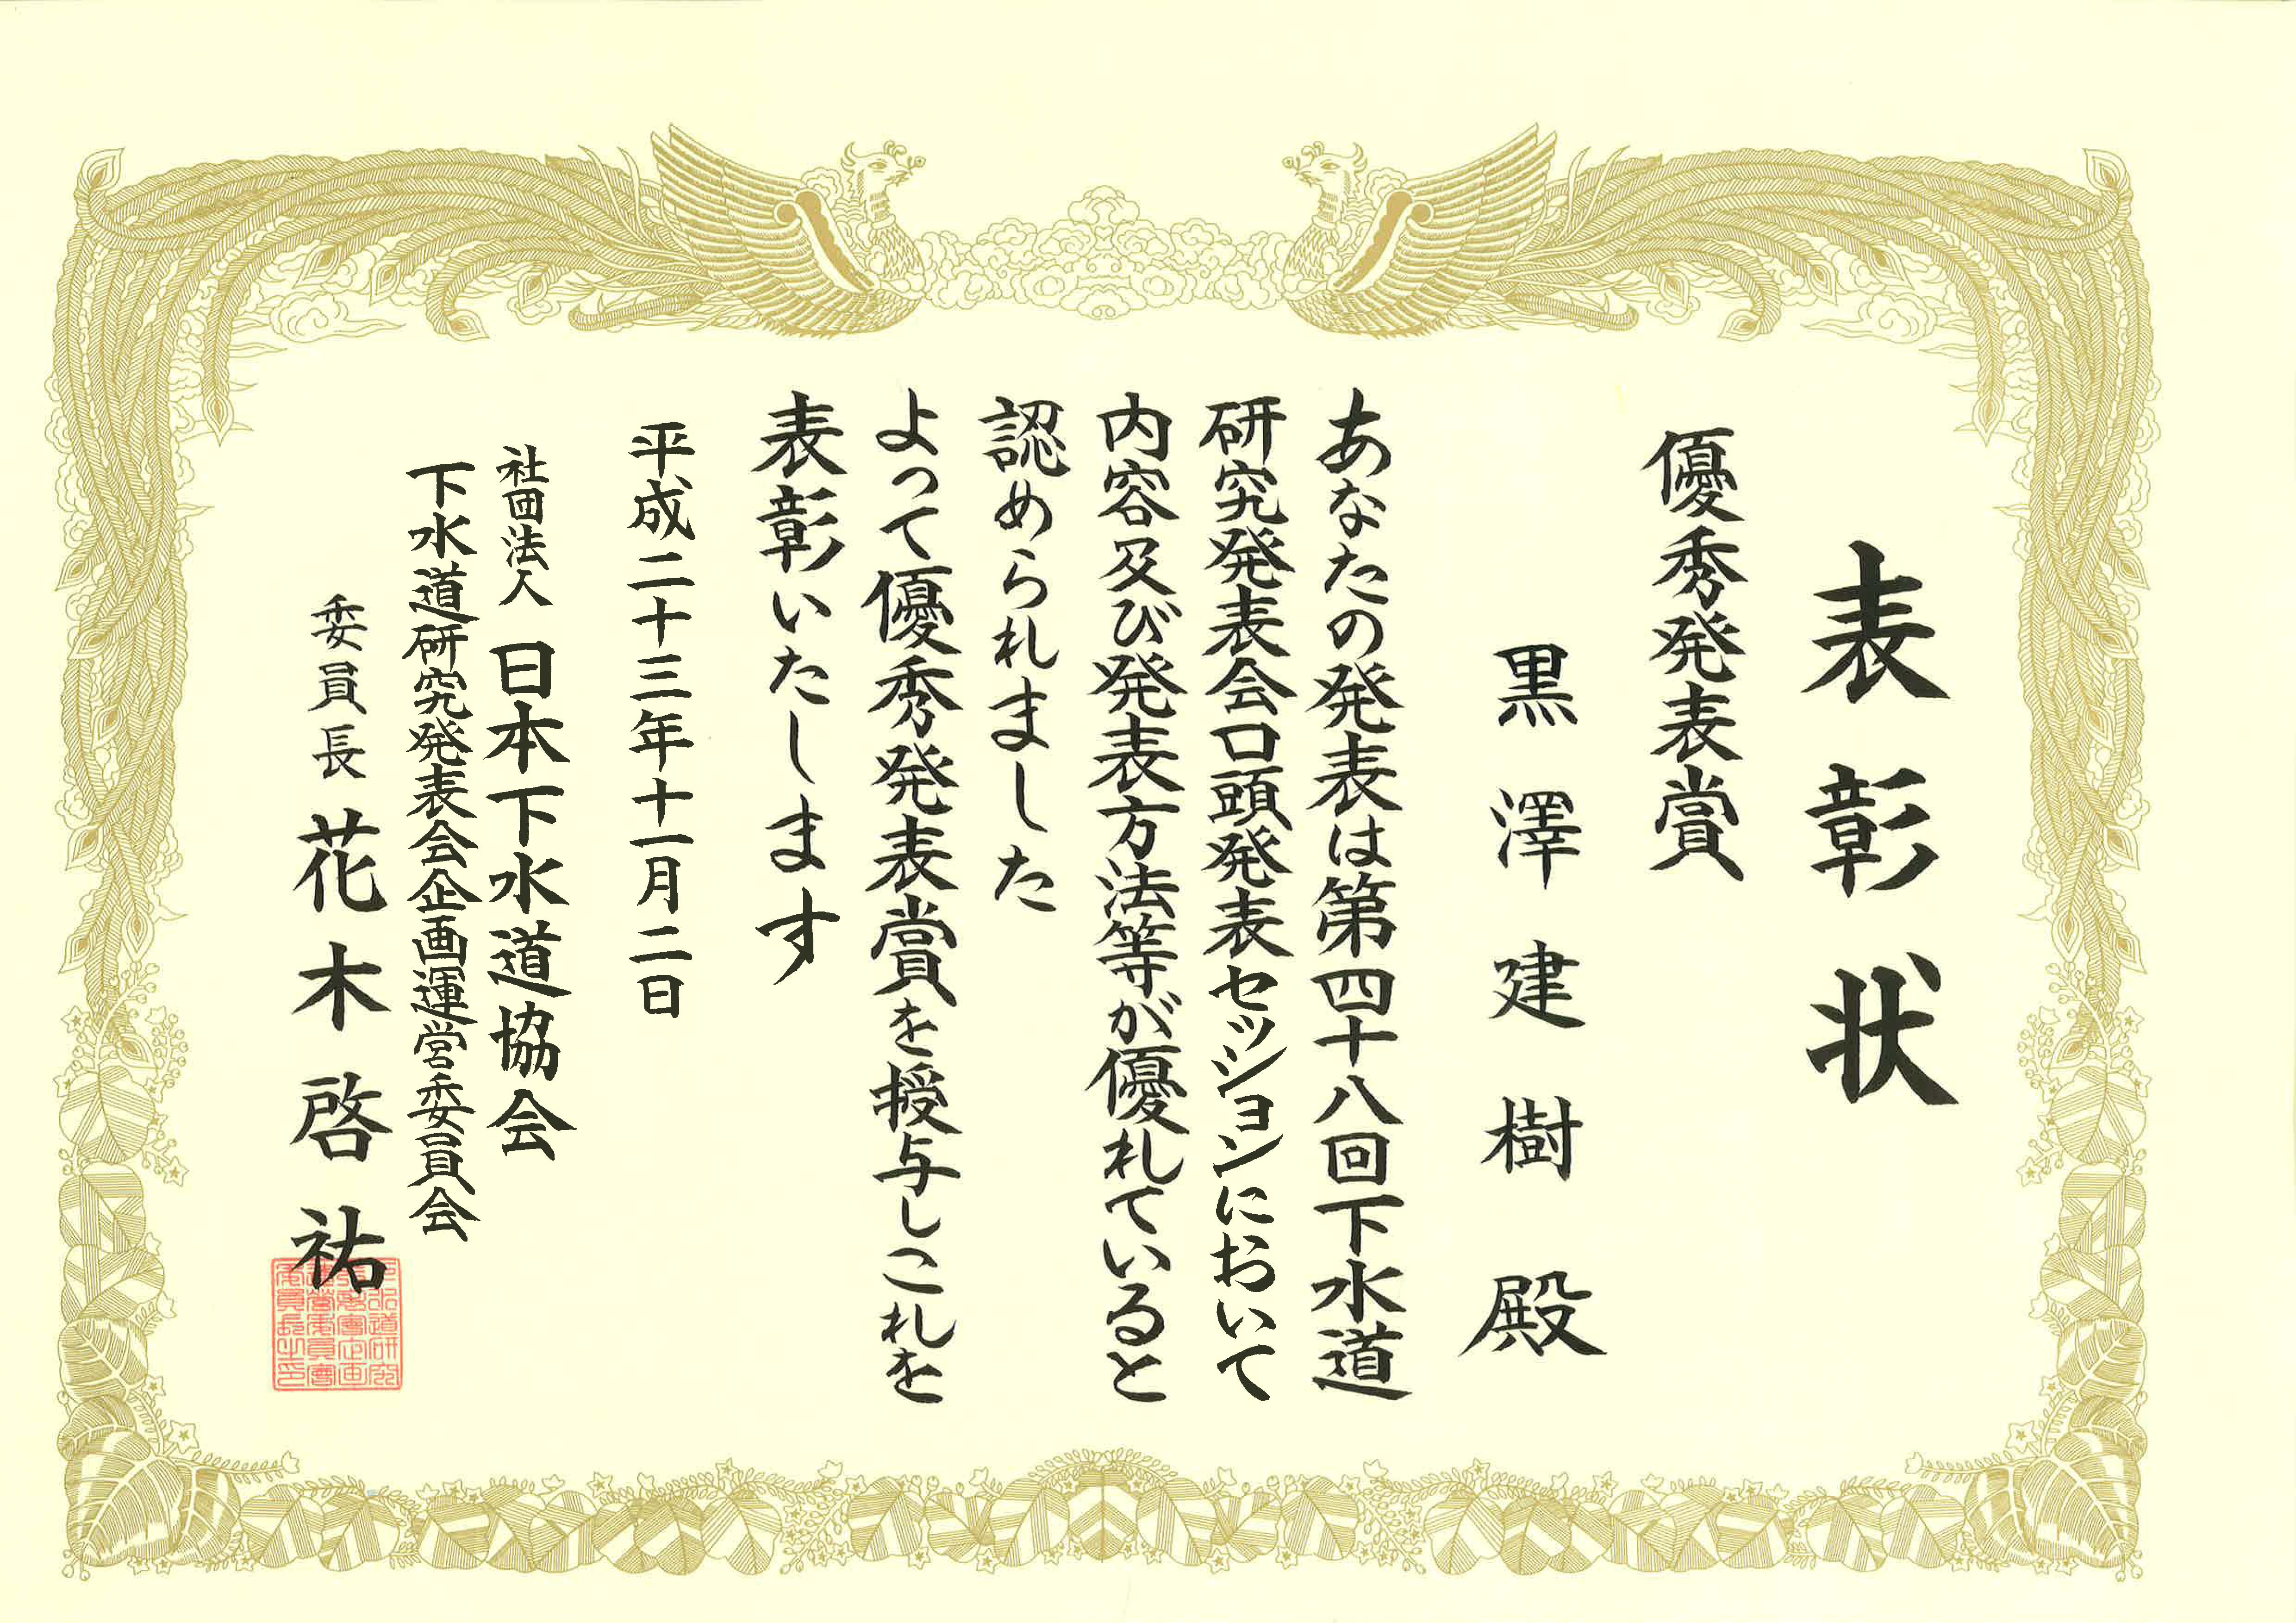 表彰状
優秀発表賞
黒澤建樹殿
あなたの発表は第四十八回下水道
研究発表会口頭発表セッションにおいて
内容及び発表方法等が優れていると
認められました
よって優秀発表賞を授与しこれを
表彰いたします
平成二十三年十一月二日
社団法人 日本下水道協会
下水道研究発表会企画運営委員会
委員長 花木啓祐